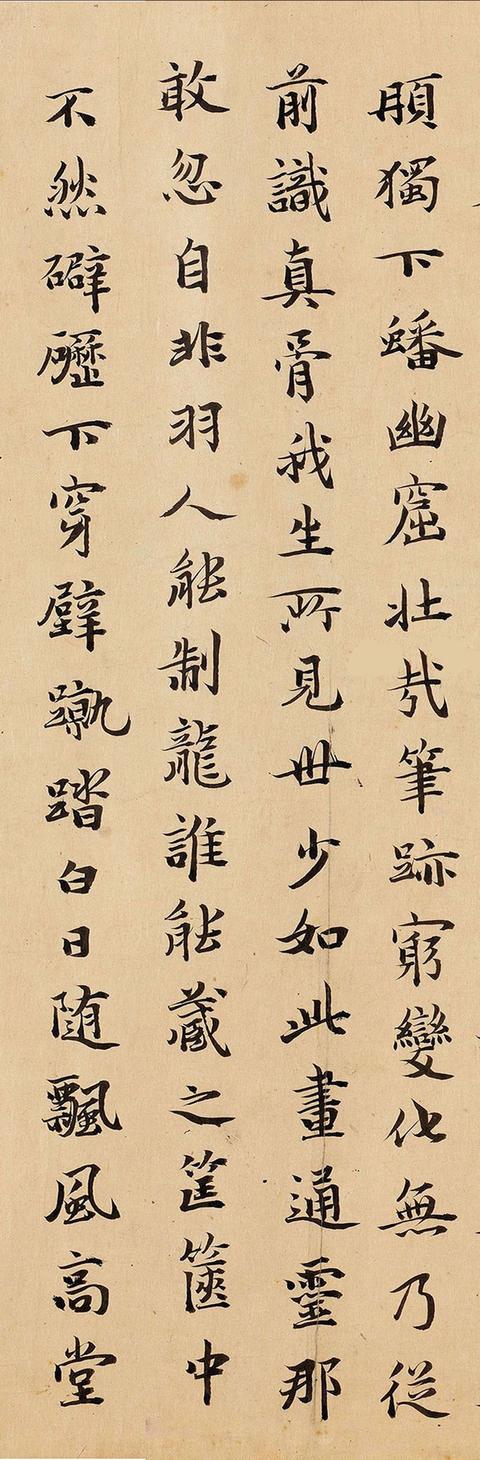 頋獨下蟠幽窟壯哉筆跡窮變化無乃從
前識真骨我生所見世少如此畫通靈那
敢忽自非羽人能制龍誰能藏之筐篋中
不然礔礰下穿壁蹴踏白日随飄風高堂